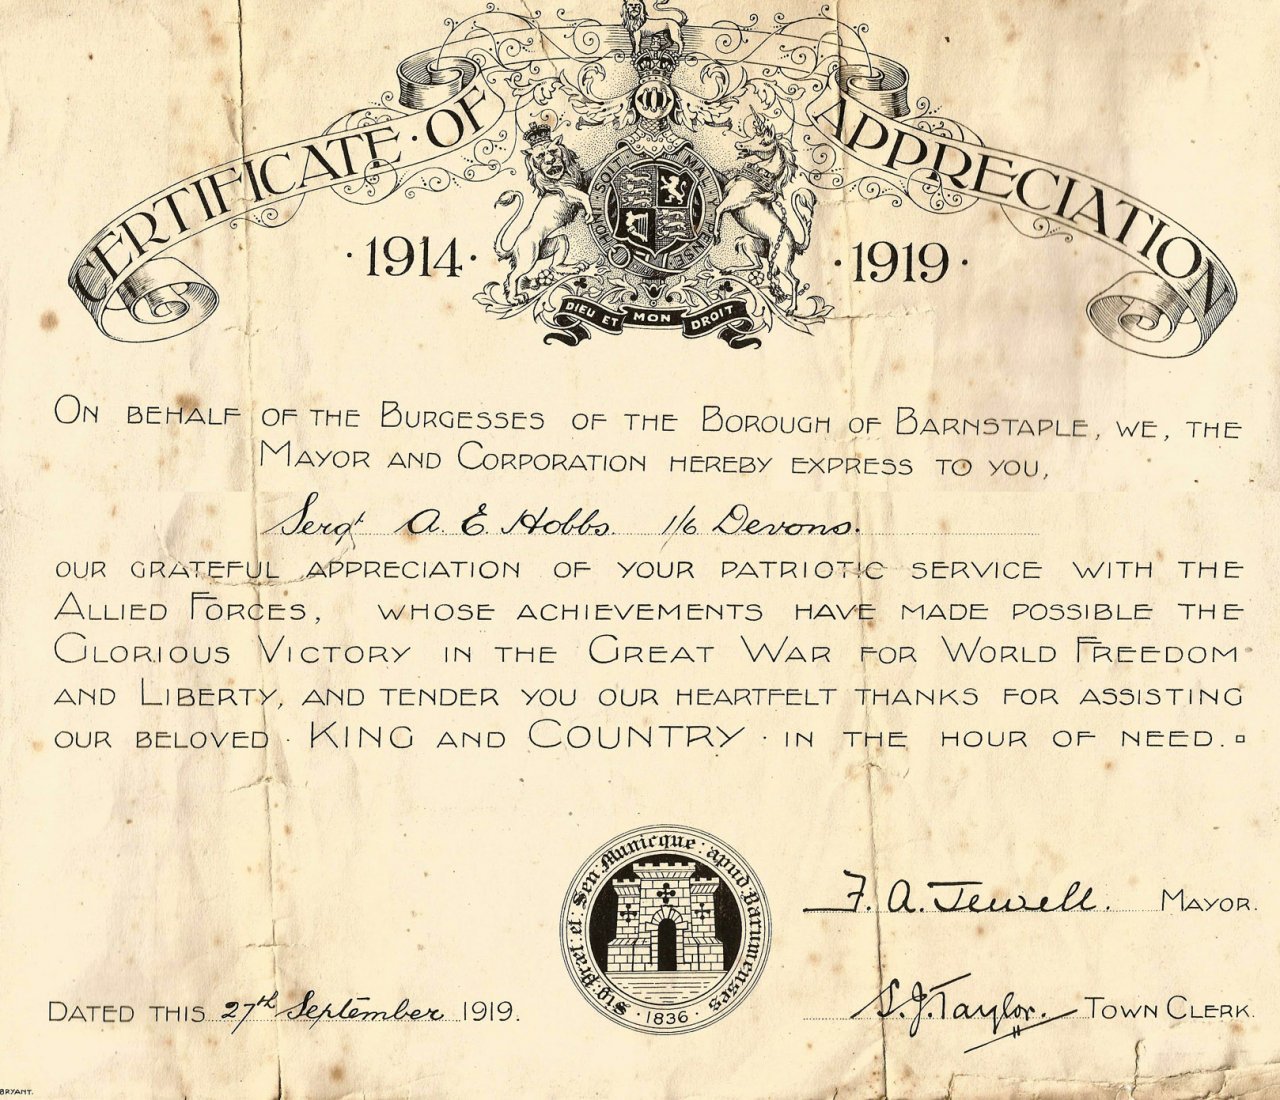 CERTIFICATE · OF APPRECIATION
· 1914 · · 1919 ·
HONI SOIT QUI MAL Y PENSE
DIEU ET MON DROIT
ON BEHALF OF THE BURGESSES OF THE BOROUGH OF BARNSTAPLE, WE, THE
MAYOR AND CORPORATION HEREBY EXPRESS TO YOU,
Sergt. A. E. Hobbs. 1/6 Devons.
OUR GRATEFUL APPRECIATION OF YOUR PATRIOTIC SERVICE WITH THE
ALLIED FORCES, WHOSE ACHIEVEMENTS HAVE MADE POSSIBLE THE
GLORIOUS VICTORY IN THE GREAT WAR FOR WORLD FREEDOM
AND LIBERTY, AND TENDER YOU OUR HEARTFELT THANKS FOR ASSISTING
OUR BELOVED · KING AND COUNTRY · IN THE HOUR OF NEED.
Sig: Præt: et: Sen: Municque: apud: Barumenses
· 1836 ·
F. A. Jewell. MAYOR.
DATED THIS 27th September 1919.
S. J. Taylor. TOWN CLERK.
BRYANT.